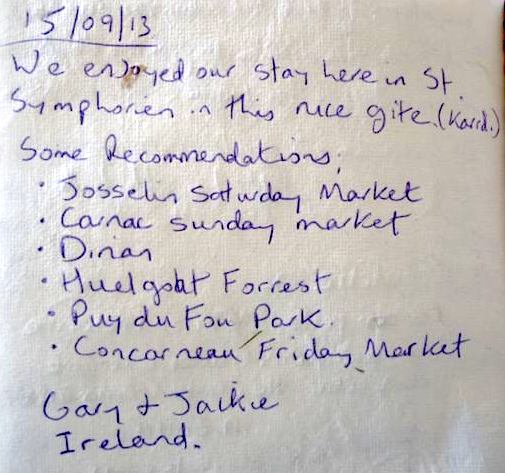 15/09/13
We enjoyed our stay here in St.
Symphorien in this nice gite.
Some Recommendations;
· Josselin Saturday Market
· Carnac Sunday market
· Dinan
· Huelgoat Forrest
· Puy du Fou Park.
· Concarneau Friday Market
Gary & Jackie
Ireland.